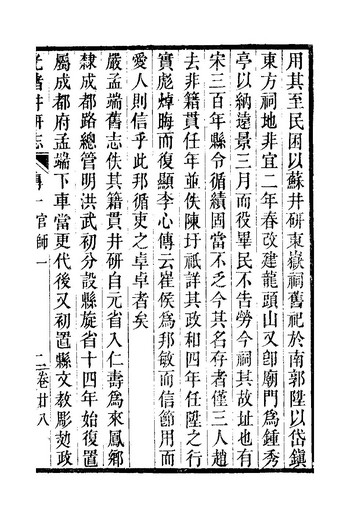 用其至民困以蘇井研東嶽祠舊祀於南郭陞以岱鎭
東方祠地非宜二年春改建龍頭山又卽廟門爲鍾秀
亭以納遠景三月而役畢民不告勞今祠其故址也有
宋三百年縣令循績固當不乏今其名存者僅三人趙
去非籍貫任年並佚陳玗祗詳其政和四年任陞之行
實彪焯晦而復顯李心傳云崔侯爲邦敏而信節用而
愛人則信乎此邦循吏之卓卓者矣
嚴孟端舊志佚其籍貫井研自元省入仁壽爲來鳳鄉
隸成都路總管明洪武初分設縣旋省十四年始復置
屬成都府孟端下車當更代後又初置縣文敎彫攰政
光緒井研志
傳一官師一
二
卷廿八